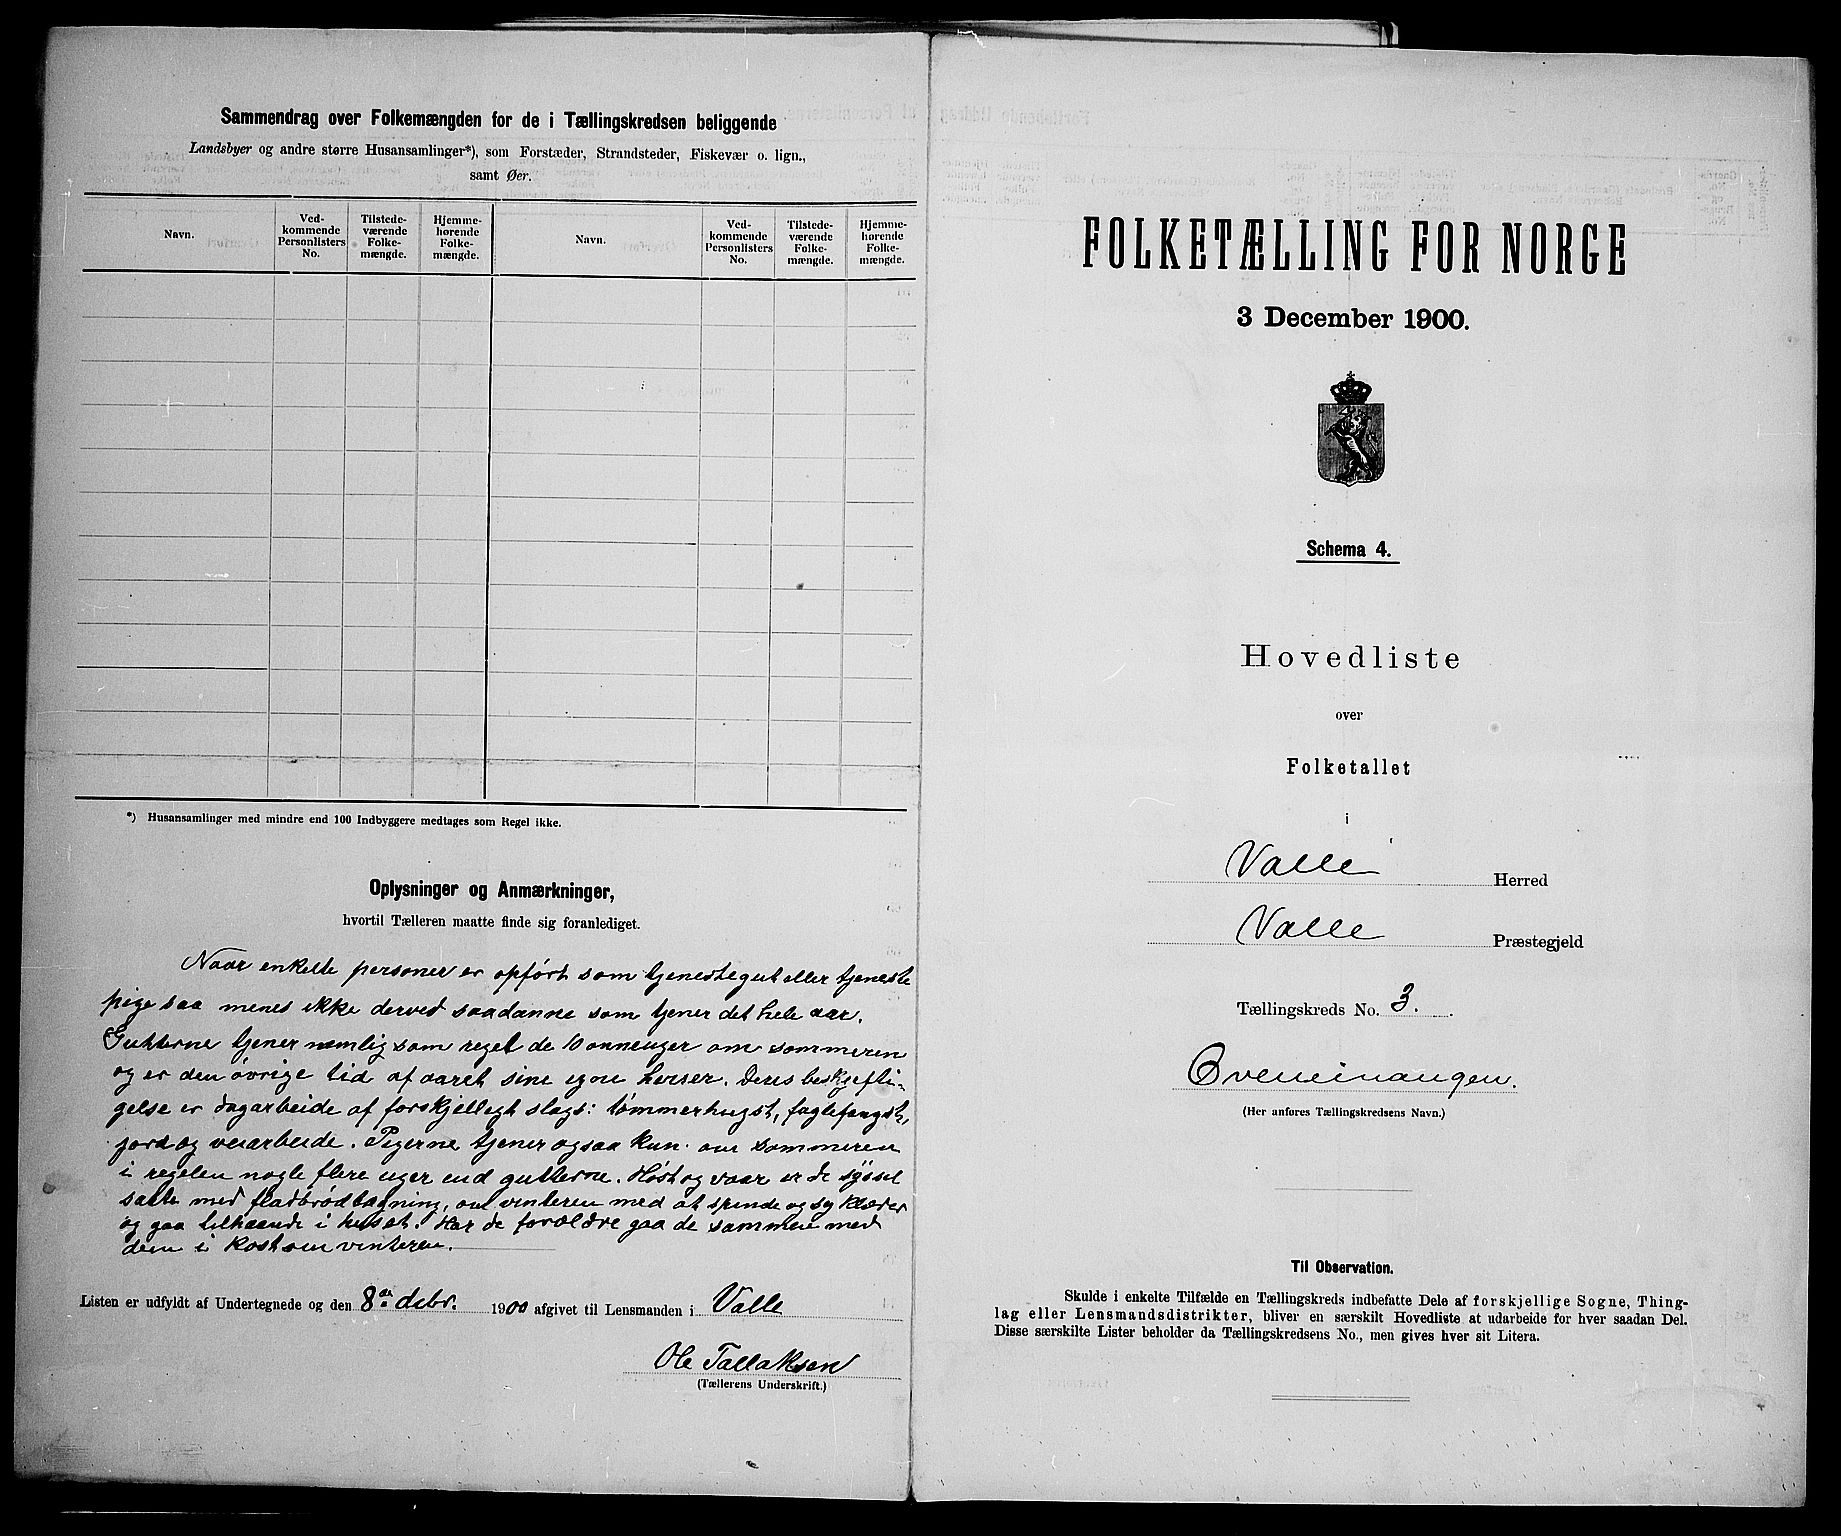 Sammendrag over Folkemængden for de i Tællingskredsen beliggende
Landsbyer og andre større Husansamlinger*), som Forstæder, Strandsteder, Fiskevær o. lign.,
samt Øer.
Navn. Ved-kommende Personlisters No. Tilstede-værende Folke-mængde. Hjemme-hørende Folke-mængde. Navn. Ved-kommende Personlisters No. Tilstede-værende Folke-mængde. Hjemme-hørende Folke-mængde.
*) Husansamlinger med mindre end 100 Indbyggere medtages som Regel ikke.
Oplysninger og Anmærkninger,
hvortil Tælleren maatte finde sig foranlediget.
Naar enkelte personer er opført som tjenestegut eller tjeneste
pige saa menes ikke derved saadanne som tjener det hele aar.
Gutterne tjener nemlig som regel de 10 onneuger om sommeren
og er den øvrige tid af aaret sine egne herrer. Deres beskjefti-
gelse er dagarbeide af forskjelligt slags: tømmerhugst, faglefangst,
jord og veiarbeide. Pigerne tjener ogsaa kun om sommeren
i regelen nogle flere uger end gutterne. Høst og vaar er de syssel
satte med fladbrødbagning, om vinteren med at spinde og sy klæder
og gaa tilhaande i huset. Har de forældre gaa de sammen med
dem i kost om vinteren.
Listen er udfyldt af Undertegnede og den 8de debr. 1900 afgivet til Lensmanden i Valle
Ole Tallaksen
(Tællerens Underskrift.)
FOLKETÆLLING FOR NORGE
3 December 1900.
Schema 4.
Hovedliste
over
Folketallet
i
Valle Herred
Valle Præstegjeld
Tællingskreds No. 3.
(Her anføres Tællingskredsens Navn.)
Til Observation.
Skulde i enkelte Tilfælde en Tællingskreds indbefatte Dele af forskjellige Sogne, Thing-
lag eller Lensmandsdistrikter, bliver en særskilt Hovedliste at udarbeide for hver saadan Del.
Disse særskilte Lister beholder da Tællingskredsens No., men gives hver sit Litera.